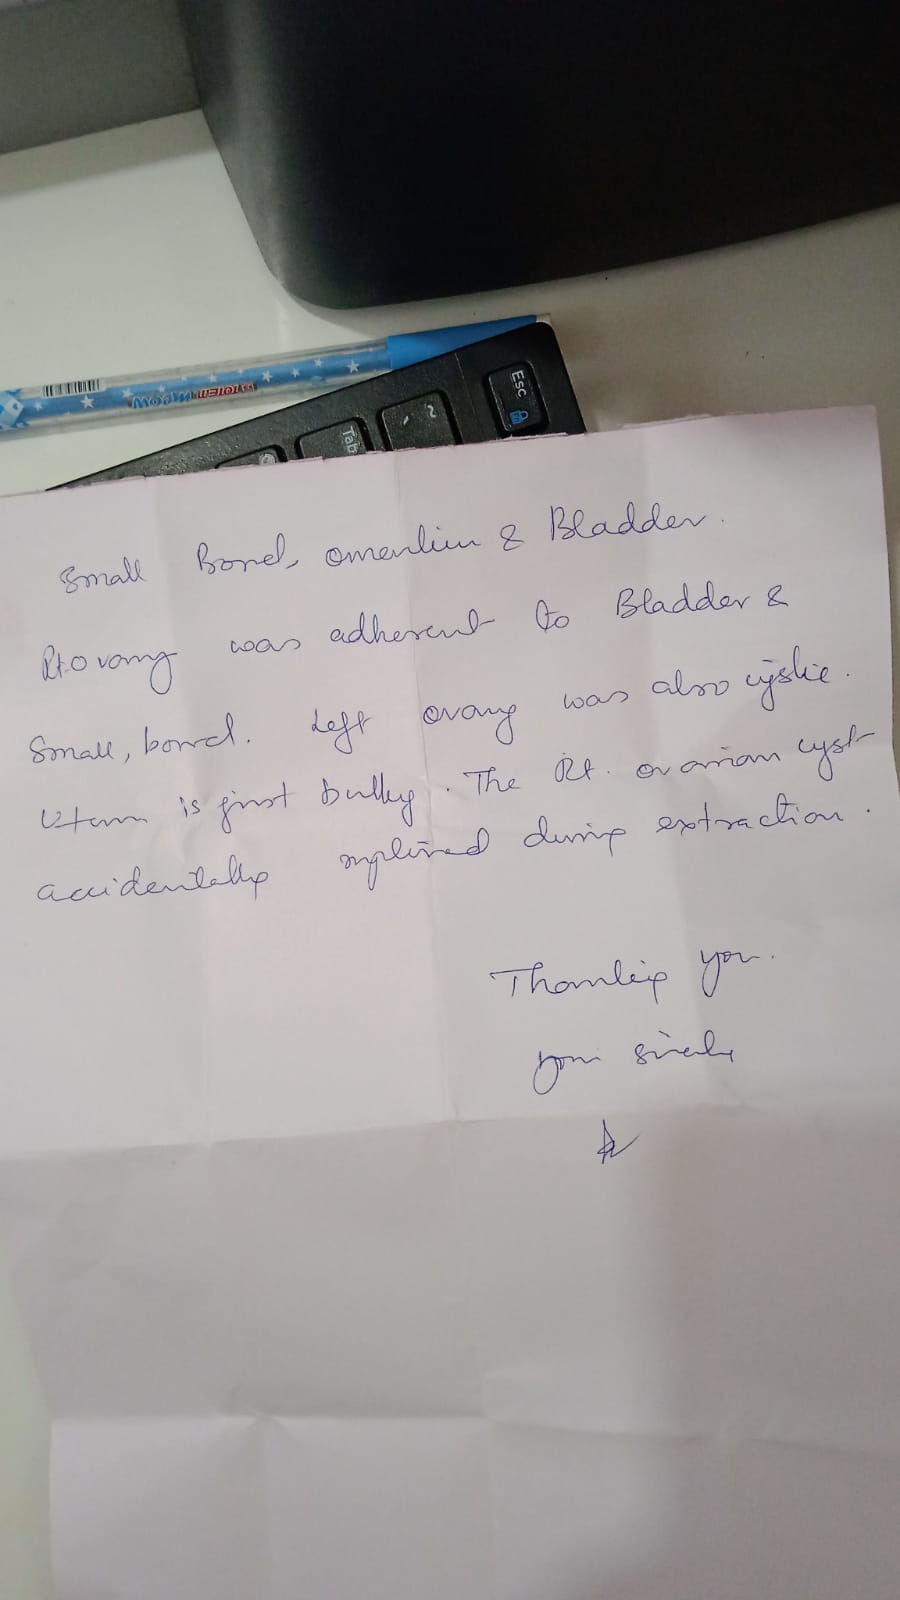 TOTEM Meow
Esc
~
`
Tab
Small Bowel, omentum & Bladder.
Rt. Ovary was adherent to Bladder &
Small, bowel. Left ovary was also cystic.
Uterus is just bulky. The Rt. ovarian cyst
accidentally ruptured during extraction.
Thanking you.
Yours sincerely